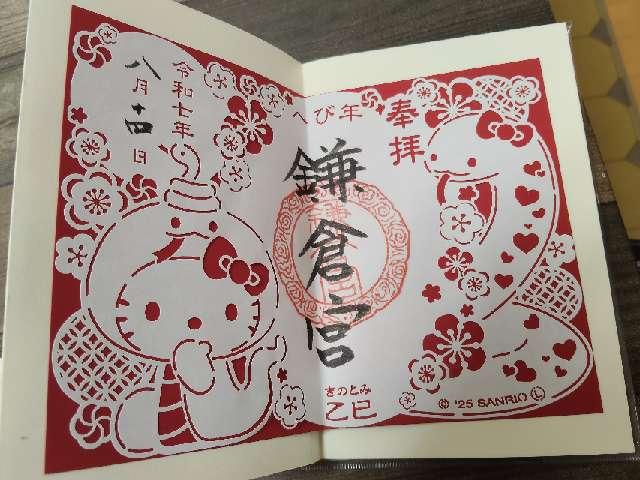 奉拝
へび年
鎌倉宮
きのとみ
乙巳
令和七年
八月十四日
© '25 SANRIO Ⓛ